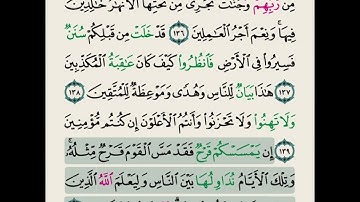 مِّن رَّبِّهِمْ وَجَنَّٰتٌ تَجْرِى مِن تَحْتِهَا ٱلْأَنْهَٰرُ خَٰلِدِينَ
فِيهَا ۚ وَنِعْمَ أَجْرُ ٱلْعَٰمِلِينَ ١٣٦ قَدْ خَلَتْ مِن قَبْلِكُمْ سُنَنٌ
فَسِيرُوا۟ فِى ٱلْأَرْضِ فَٱنظُرُوا۟ كَيْفَ كَانَ عَٰقِبَةُ ٱلْمُكَذِّبِينَ
١٣٧ هَٰذَا بَيَانٌ لِّلنَّاسِ وَهُدًى وَمَوْعِظَةٌ لِّلْمُتَّقِينَ ١٣٨
وَلَا تَهِنُوا۟ وَلَا تَحْزَنُوا۟ وَأَنتُمُ ٱلْأَعْلَوْنَ إِن كُنتُم مُّؤْمِنِينَ
١٣٩ إِن يَمْسَسْكُمْ قَرْحٌ فَقَدْ مَسَّ ٱلْقَوْمَ قَرْحٌ مِّثْلُهُۥ ۚ
وَتِلْكَ ٱلْأَيَّامُ نُدَاوِلُهَا بَيْنَ ٱلنَّاسِ وَلِيَعْلَمَ ٱللَّهُ ٱلَّذِينَ